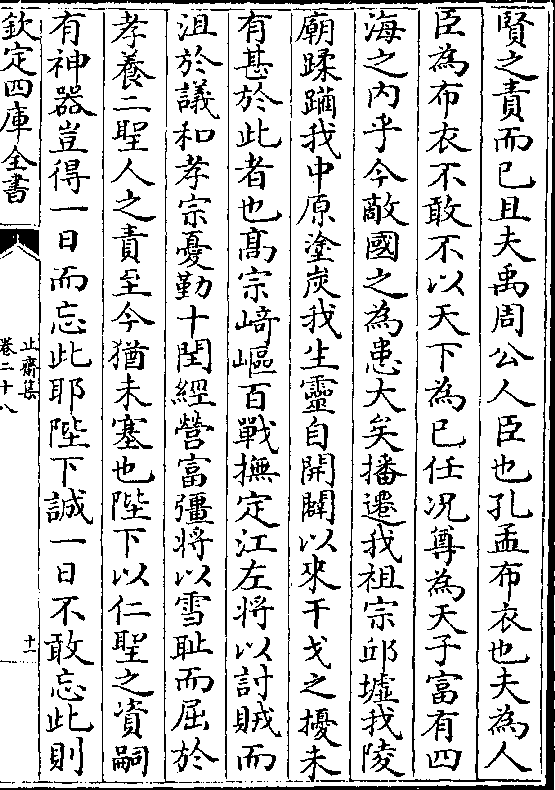 賢之責而已且夫禹周公人臣也孔孟布衣也夫為人
臣為布衣不敢不以天下為已任况尊為天子富有四
海之内乎今敵國之為患大矣播遷我祖宗邱墟我陵
廟蹂蹦我中原塗炭我生靈自開闢以來干戈之擾未
有甚於此者也髙宗﨑嶇百戰撫定江左將以討賊而
沮於議和孝宗憂勤十閏經營富彊將以雪耻而屈於
孝養二聖人之責至今猶未塞也陛下以仁聖之資嗣
有神器豈得一日而忘此耶陛下誠一日不敢忘此則
欽定四庫全書
止齋集
卷二十八
十一